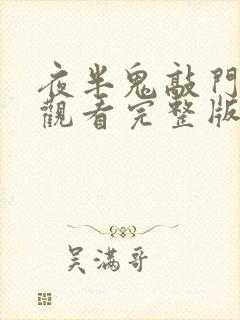 夜半鬼敲門
觀看完整版
吴满哥